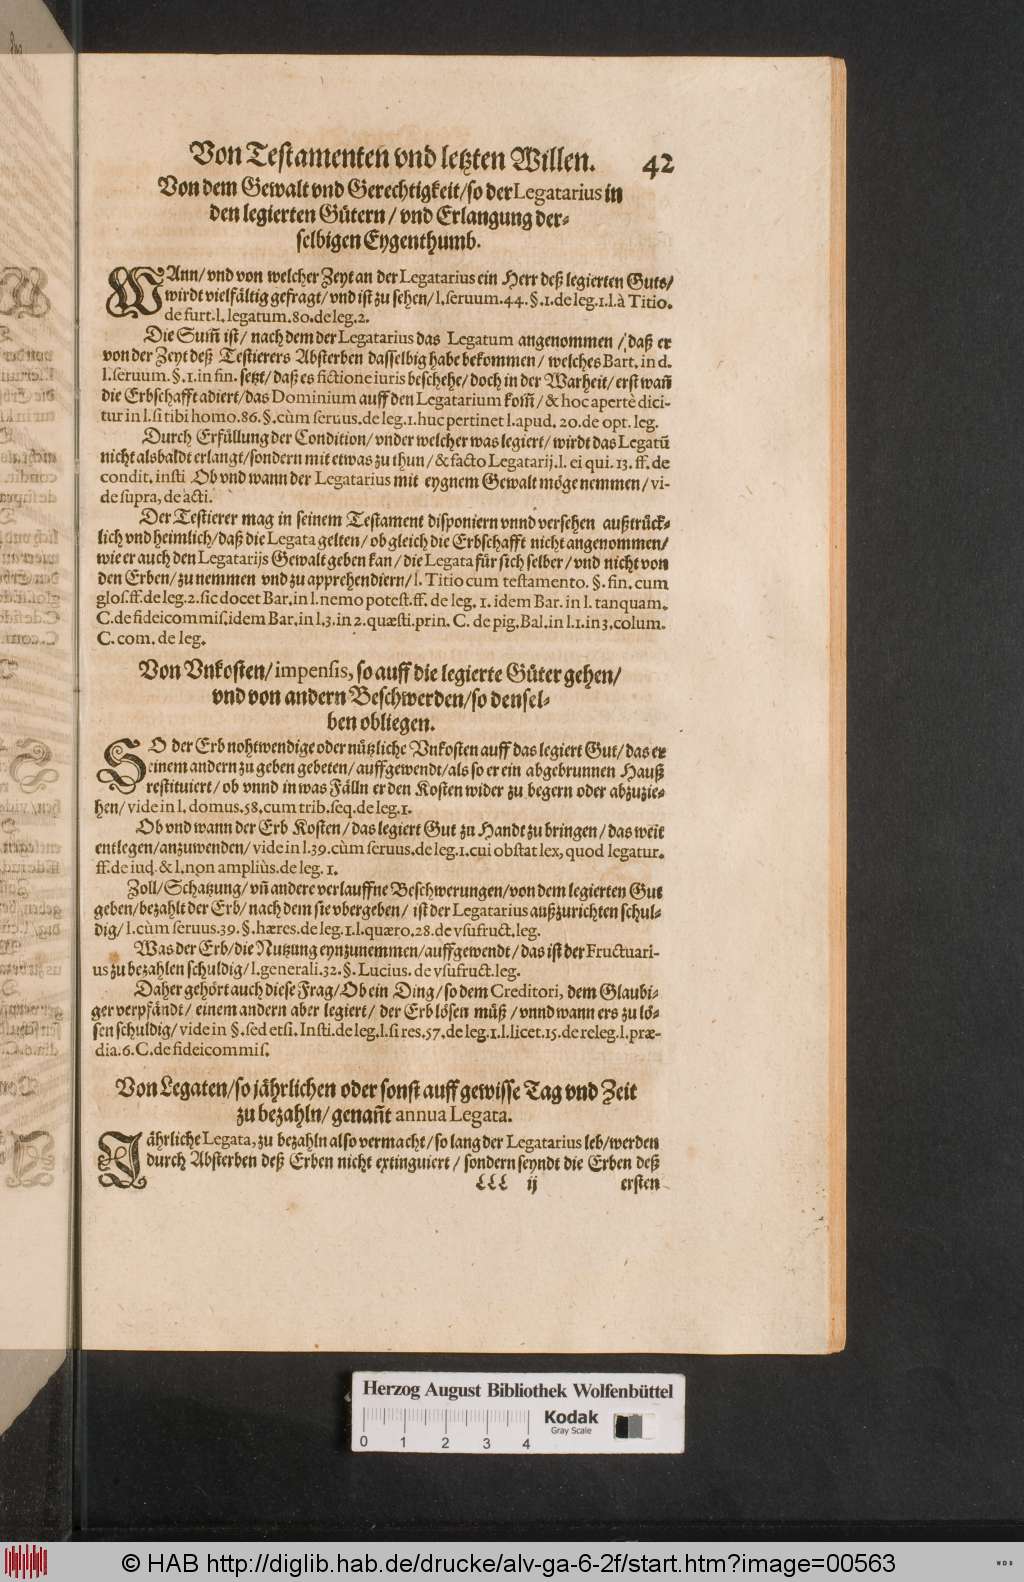 Von Testamenten vnd letzten Willen. 42
Von dem Gewalt vnd Gerechtigkeit/so der Legatarius in
den legierten Gütern / vnd Erlangung der-
selbigen Eygenthumb.
WAnn/ vnd von welcher Zeyt an der Legatarius ein Herr deß legierten Guts/
wirdt vielfältig gefragt/ vnd ist zu sehen/ l. seruum. 44. §. 1. de leg. 1. l. à Titio.
de furt. l. legatum. 80. de leg. 2.
Die Sum̃ ist/ nach dem der Legatarius das Legatum angenommen / daß er
von der Zeyt deß Testierers Absterben dasselbig habe bekommen / welches Bart. in d.
l. seruum. §. 1. in fin. setzt/ daß es fictione iuris beschehe/ doch in der Warheit/ erst wañ
die Erbschafft adiert/ das Dominium auff den Legatarium kom̃/ & hoc apertè dici-
tur in l. si tibi homo. 86. §. cùm seruus. de leg. 1. huc pertinet l. apud. 20. de opt. leg.
Durch Erfüllung der Condition/ vnder welcher was legiert/ wirdt das Legatũ
nicht alsbaldt erlangt/sondern mit etwas zu thun/ & facto Legatarij. l. ei qui. 13. ff. de
condit. insti Ob vnd wann der Legatarius mit eygnem Gewalt möge nemmen/ vi-
de supra, de acti.
Der Testierer mag in seinem Testament disponiern vnnd versehen außtrück-
lich vnd heimlich/ daß die Legata gelten/ ob gleich die Erbschafft nicht angenommen/
wie er auch den Legatarijs Gewalt geben kan/ die Legata für sich selber/ vnd nicht von
den Erben/ zu nemmen vnd zu apprehendiern/ l. Titio cum testamento. §. fin. cum
glos. ff. de leg. 2. sic docet Bar. in l. nemo potest. ff. de leg. 1. idem Bar. in l. tanquam.
C. de fideicommis. idem Bar. in l. 3. in 2. quæsti. prin. C. de pig. Bal. in l. 1. in 3. colum.
C. com. de leg.
Von Vnkosten/ impensis, so auff die legierte Güter gehen/
vnd von andern Beschwerden/so densel-
ben obliegen.
SO der Erb nohtwendige oder nützliche Vnkosten auff das legiert Gut/ das er
einem andern zu geben gebeten/ auffgewendt/ als so er ein abgebrunnen Hauß
restituiert/ ob vnnd in was Fälln er den Kosten wider zu begern oder abzuzie-
hen/ vide in l. domus. 58. cum trib. seq. de leg. 1.
Ob vnd wann der Erb Kosten/ das legiert Gut zu Handt zu bringen/ das weit
entlegen/anzuwenden/ vide in l. 39. cùm seruus. de leg. 1. cui obstat lex, quod legatur.
ff. de iud. & l. non ampliùs. de leg. 1.
Zoll/ Schatzung/ vñ andere verlauffne Beschwerungen/ von dem legierten Gut
geben/bezahlt der Erb/ nach dem sie vbergeben/ ist der Legatarius außzurichten schul-
dig/ l. cùm seruus. 39. §. hæres. de leg. 1. l. quæro. 28. de vsufruct. leg.
Was der Erb/ die Nutzung eynzunemmen/auffgewendt/ das ist der Fructuari-
us zu bezahlen schuldig/ l. generali. 32. §. Lucius. de vsufruct. leg.
Daher gehört auch diese Frag/ Ob ein Ding/ so dem Creditori, dem Glaubi-
ger verpfändt/ einem andern aber legiert/ der Erb lösen müß/ vnnd wann ers zu lö-
sen schuldig/ vide in §. sed etsi. Insti. de leg. l. si res. 57. de leg. 1. l. licet. 15. de releg. l. præ-
dia. 6. C. de fideicommis.
Von Legaten/so jährlichen oder sonst auff gewisse Tag vnd Zeit
zu bezahln/ genañt annua Legata.
Jährliche Legata, zu bezahln also vermacht/ so lang der Legatarius leb/werden
durch Absterben deß Erben nicht extinguiert / sondern seyndt die Erben deß
LLL ij ersten
Herzog August Bibliothek Wolfenbüttel
Kodak
Gray Scale
0 1 2 3 4
© HAB http://diglib.hab.de/drucke/alv-ga-6-2f/start.htm?image=00563